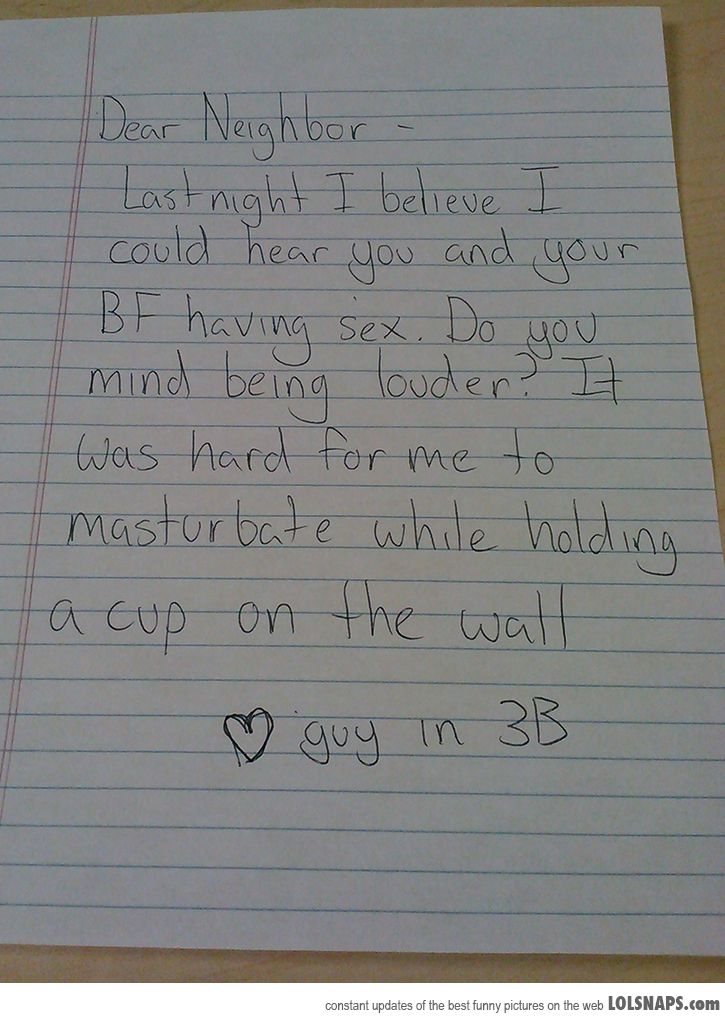 Dear Neighbor -
Last night I believe I
could hear you and your
BF having sex. Do you
mind being louder? It
was hard for me to
masturbate while holding
a cup on the wall
♥ guy in 3B
constant updates of the best funny pictures on the web LOLSNAPS.com